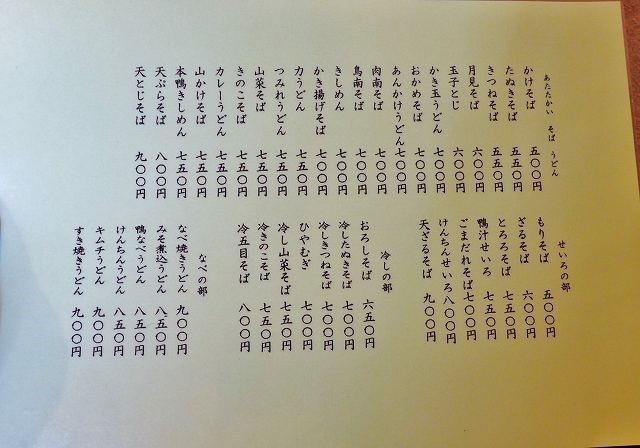 あたたかい そば うどん
かけそば 五〇〇円
たぬきそば 五五〇円
きつねそば 五五〇円
月見そば 六〇〇円
玉子とじ 六〇〇円
かき玉うどん 七〇〇円
おかめそば 七〇〇円
あんかけうどん 七〇〇円
肉南そば 七〇〇円
鳥南そば 七〇〇円
きしめん 七〇〇円
かき揚げそば 七〇〇円
力うどん 七五〇円
つみれうどん 七五〇円
山菜そば 七五〇円
きのこそば 七五〇円
カレーうどん 七五〇円
山かけそば 七五〇円
本鴨きしめん 七五〇円
天ぷらそば 八〇〇円
天とじそば 九〇〇円
せいろの部
もりそば 五〇〇円
ざるそば 六〇〇円
とろろそば 七五〇円
鴨汁せいろ 七五〇円
ごまだれそば 七〇〇円
けんちんせいろ 八〇〇円
天ざるそば 九〇〇円
冷しの部
おろしそば 六五〇円
冷したぬきそば 七〇〇円
冷しきつねそば 七〇〇円
ひやむぎ 七〇〇円
冷し山菜そば 七五〇円
冷きのこそば 七五〇円
冷五目そば 八〇〇円
なべの部
なべ焼きうどん 九〇〇円
みそ煮込うどん 八五〇円
鴨なべうどん 八五〇円
けんちんうどん 八五〇円
キムチうどん 九〇〇円
すき焼きうどん 九〇〇円